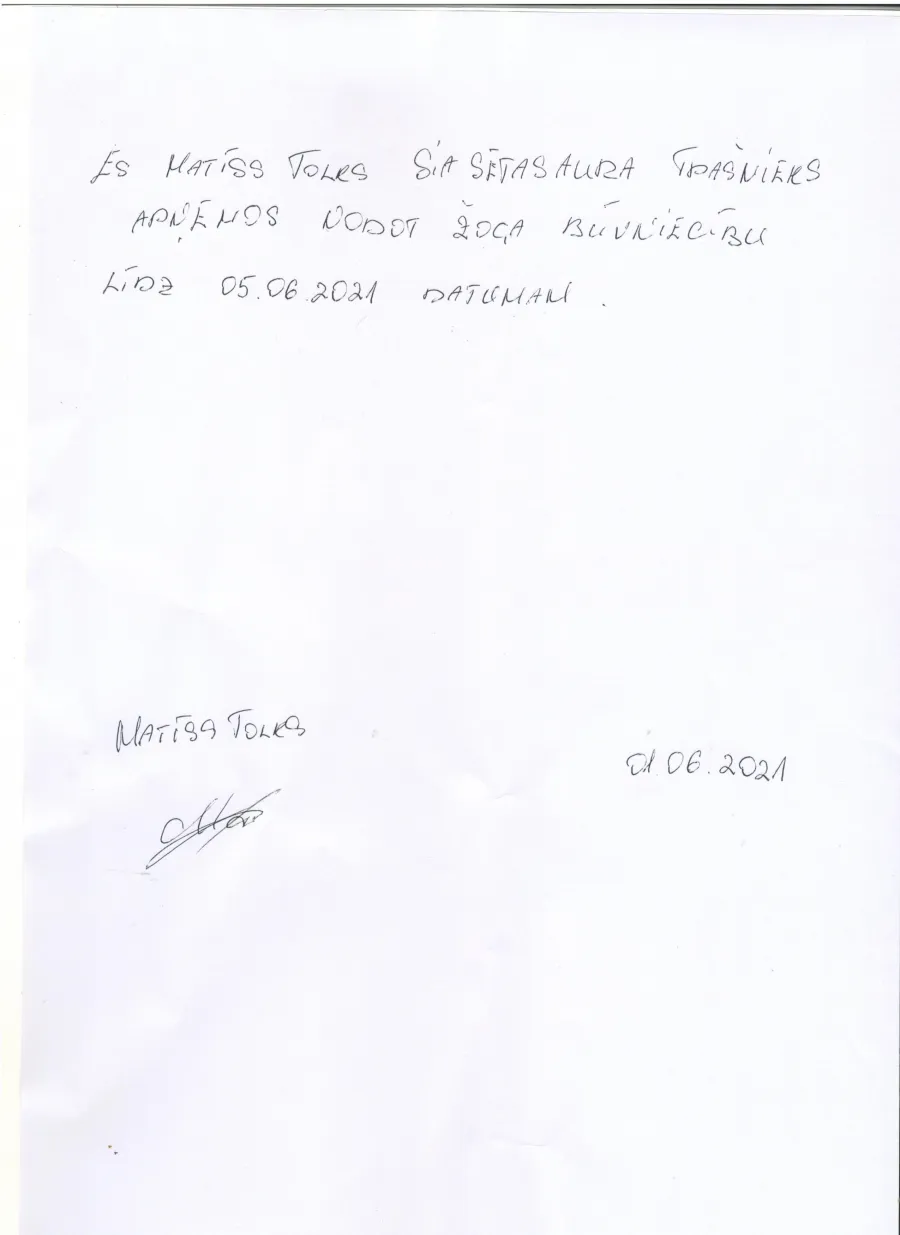 ES MATĪSS TOLKS SIA SĒTASAURA ĪPAŠNIEKS
APŅĒMOS NODOT ŽOGA BŪVNIECĪBU
LĪDZ 05.06.2021 DATUMAM.
MATĪSS TOLKS
01.06.2021